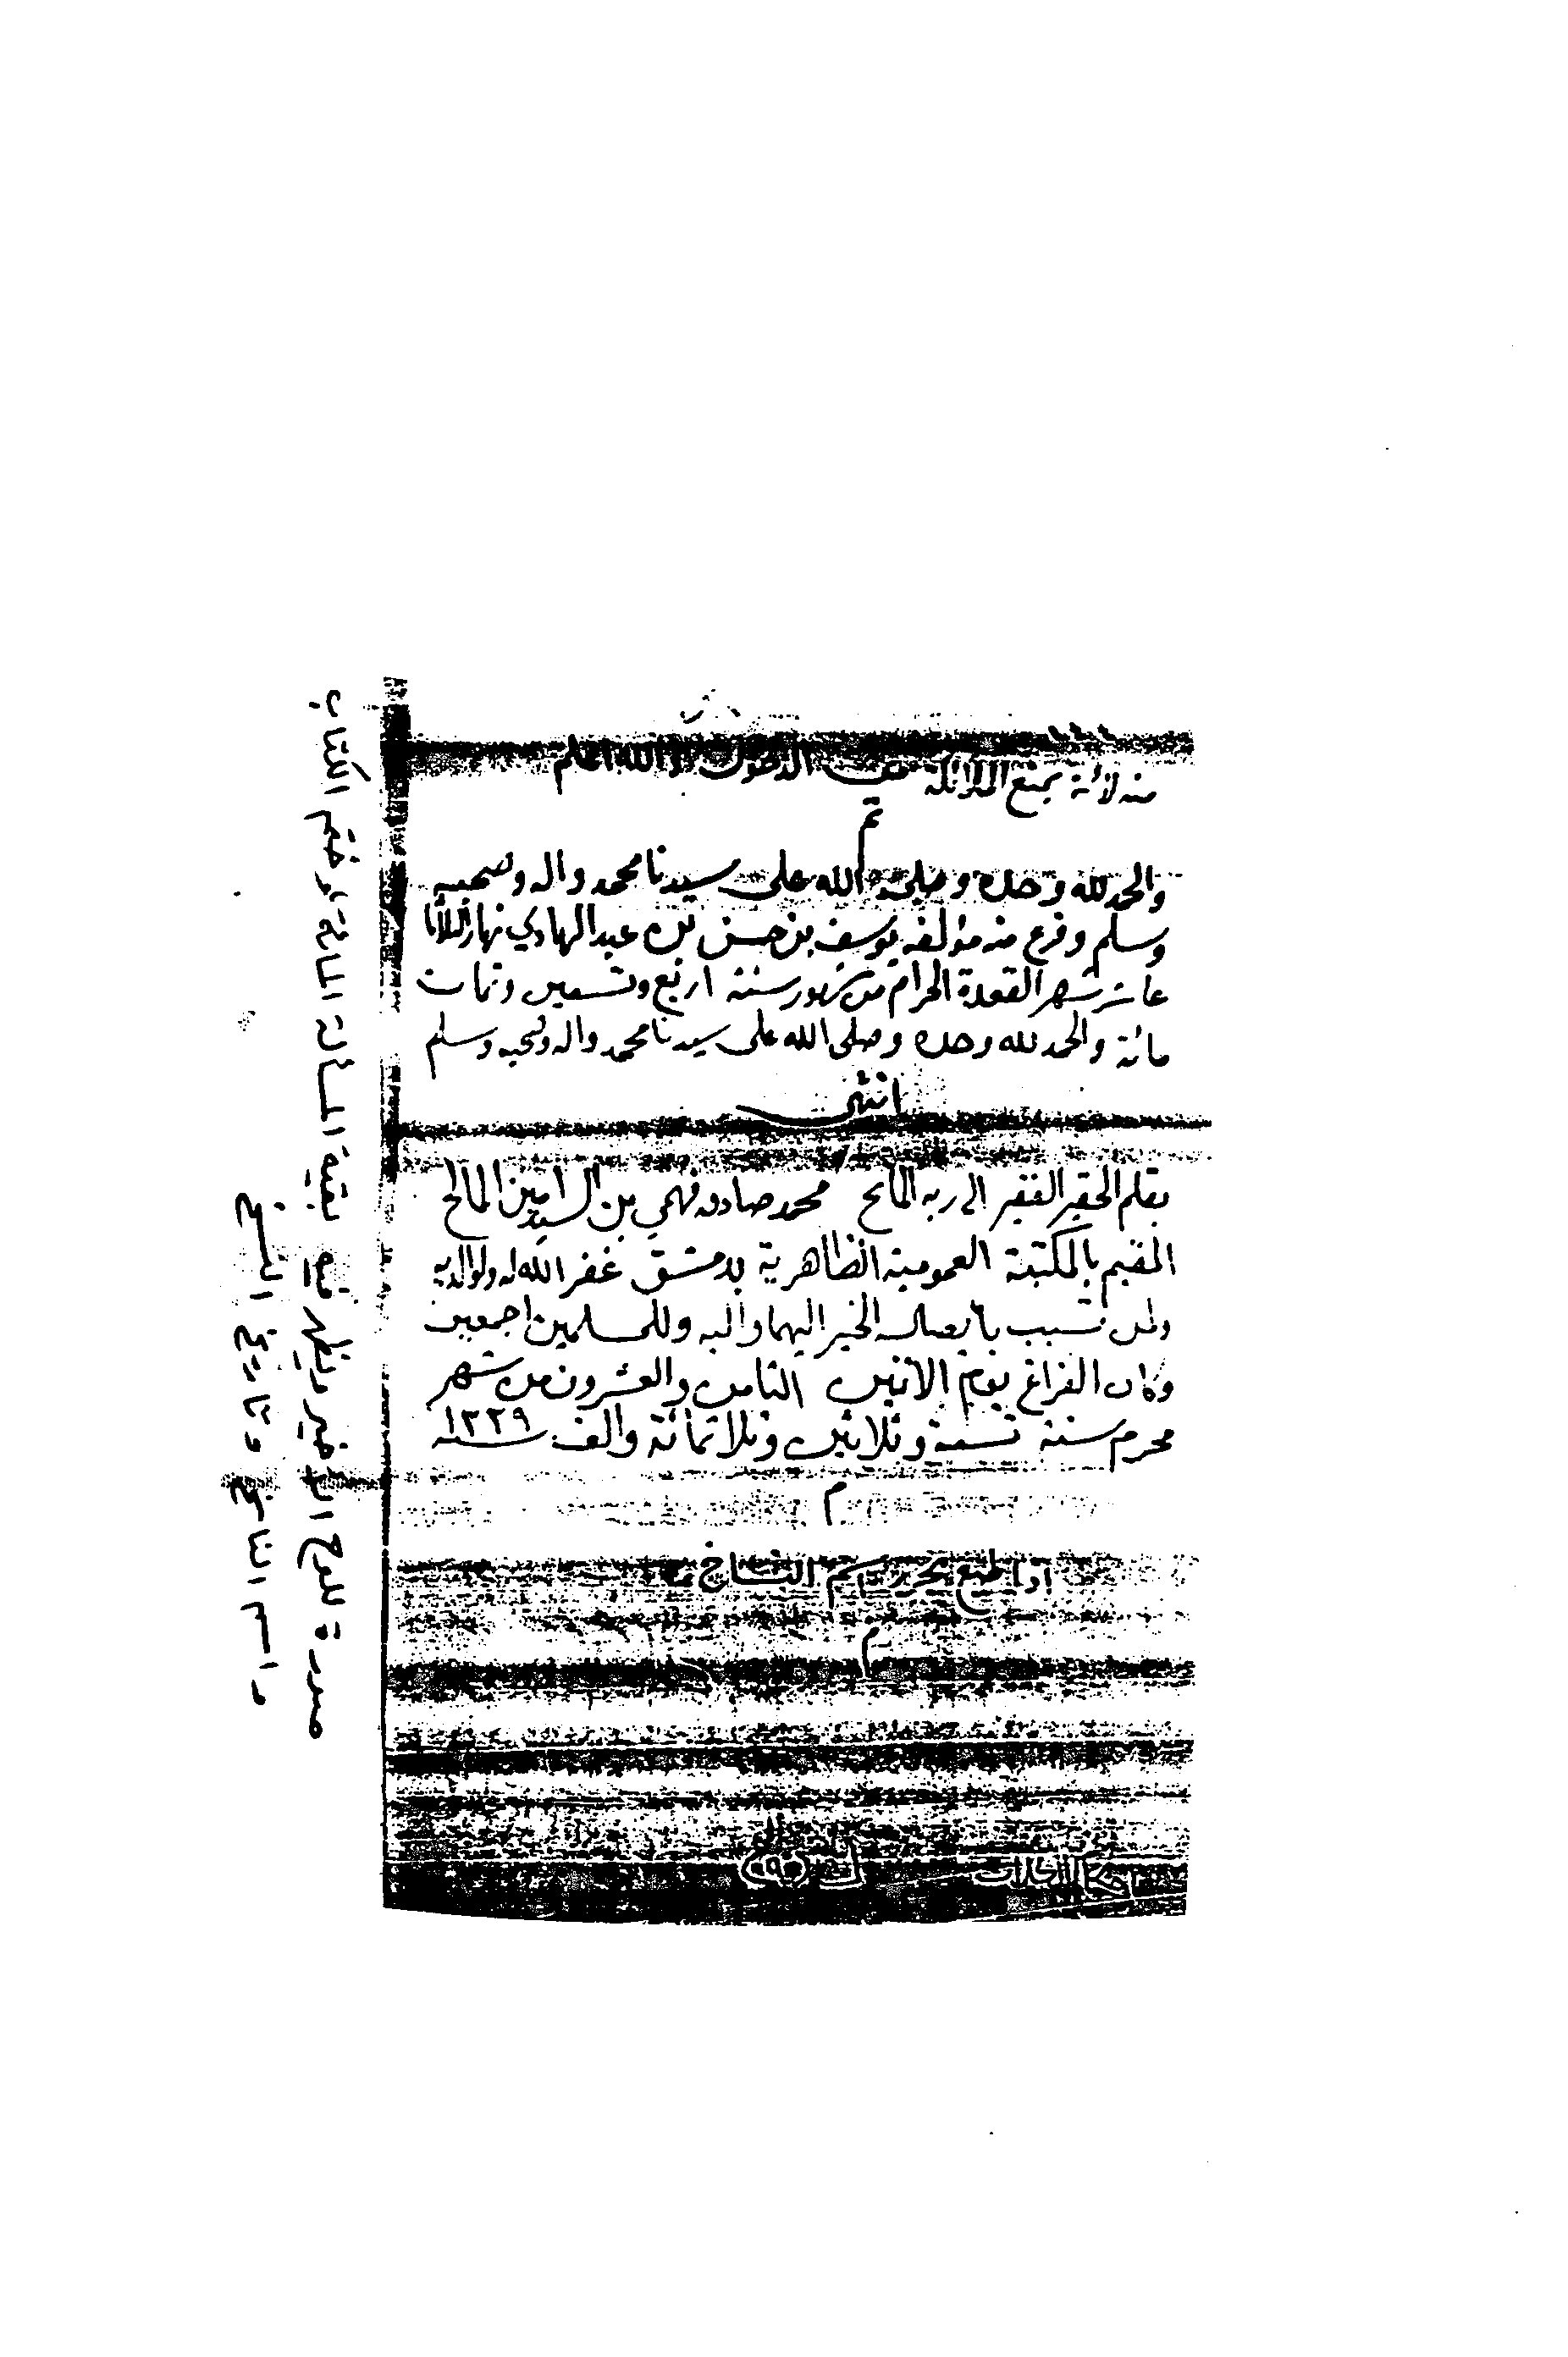 منه لأنه يمنع الملائكة من الدخول والله اعلم
تم
والحمد لله وحده وصلى الله على سيدنا محمد واله وصحبه
وسلم وفرغ منه مؤلفه يوسف بن حسن بن عبد الهادي نهار الثلاثا
عاشر شهر القعدة الحرام من شهور سنة اربع وتسعين وثمان
مائة والحمد لله وحده وصلى الله على سيدنا محمد واله وصحبه وسلم
انتهى
بقلم الحقير الفقير الى ربه المانح محمد صادق فهمي بن السيد امين المالح
المقيم بالمكتبة العمومية الظاهرية بدمشق غفر الله له ولوالديه
ولمن تسبب بايصال الخير اليهما واليه وللمسلمين اجمعين
وكان الفراغ يوم الاثنين الثامن والعشرون من شهر
محرم سنة تسعة وثلاثين وثلاثمائة والف سنة ١٣٣٩
م
اذا طبع يحرر اسم الناسخ
م
صورة للوح الاخير ويظهر فيه بقية المسائل وختم الكتاب
واسم الناسخ وتاريخ النسخ